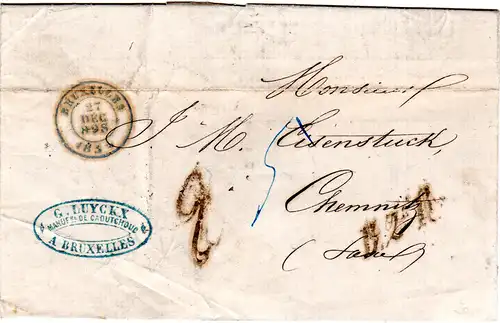 BRUXELLES
27
DEC
1854
G. LUYCKX
MANUFRE DE CAOUTCHOUC
A BRUXELLES
Monsieur
J. M. Eisenstuck,
Chemnitz
(Saxe)
2
5